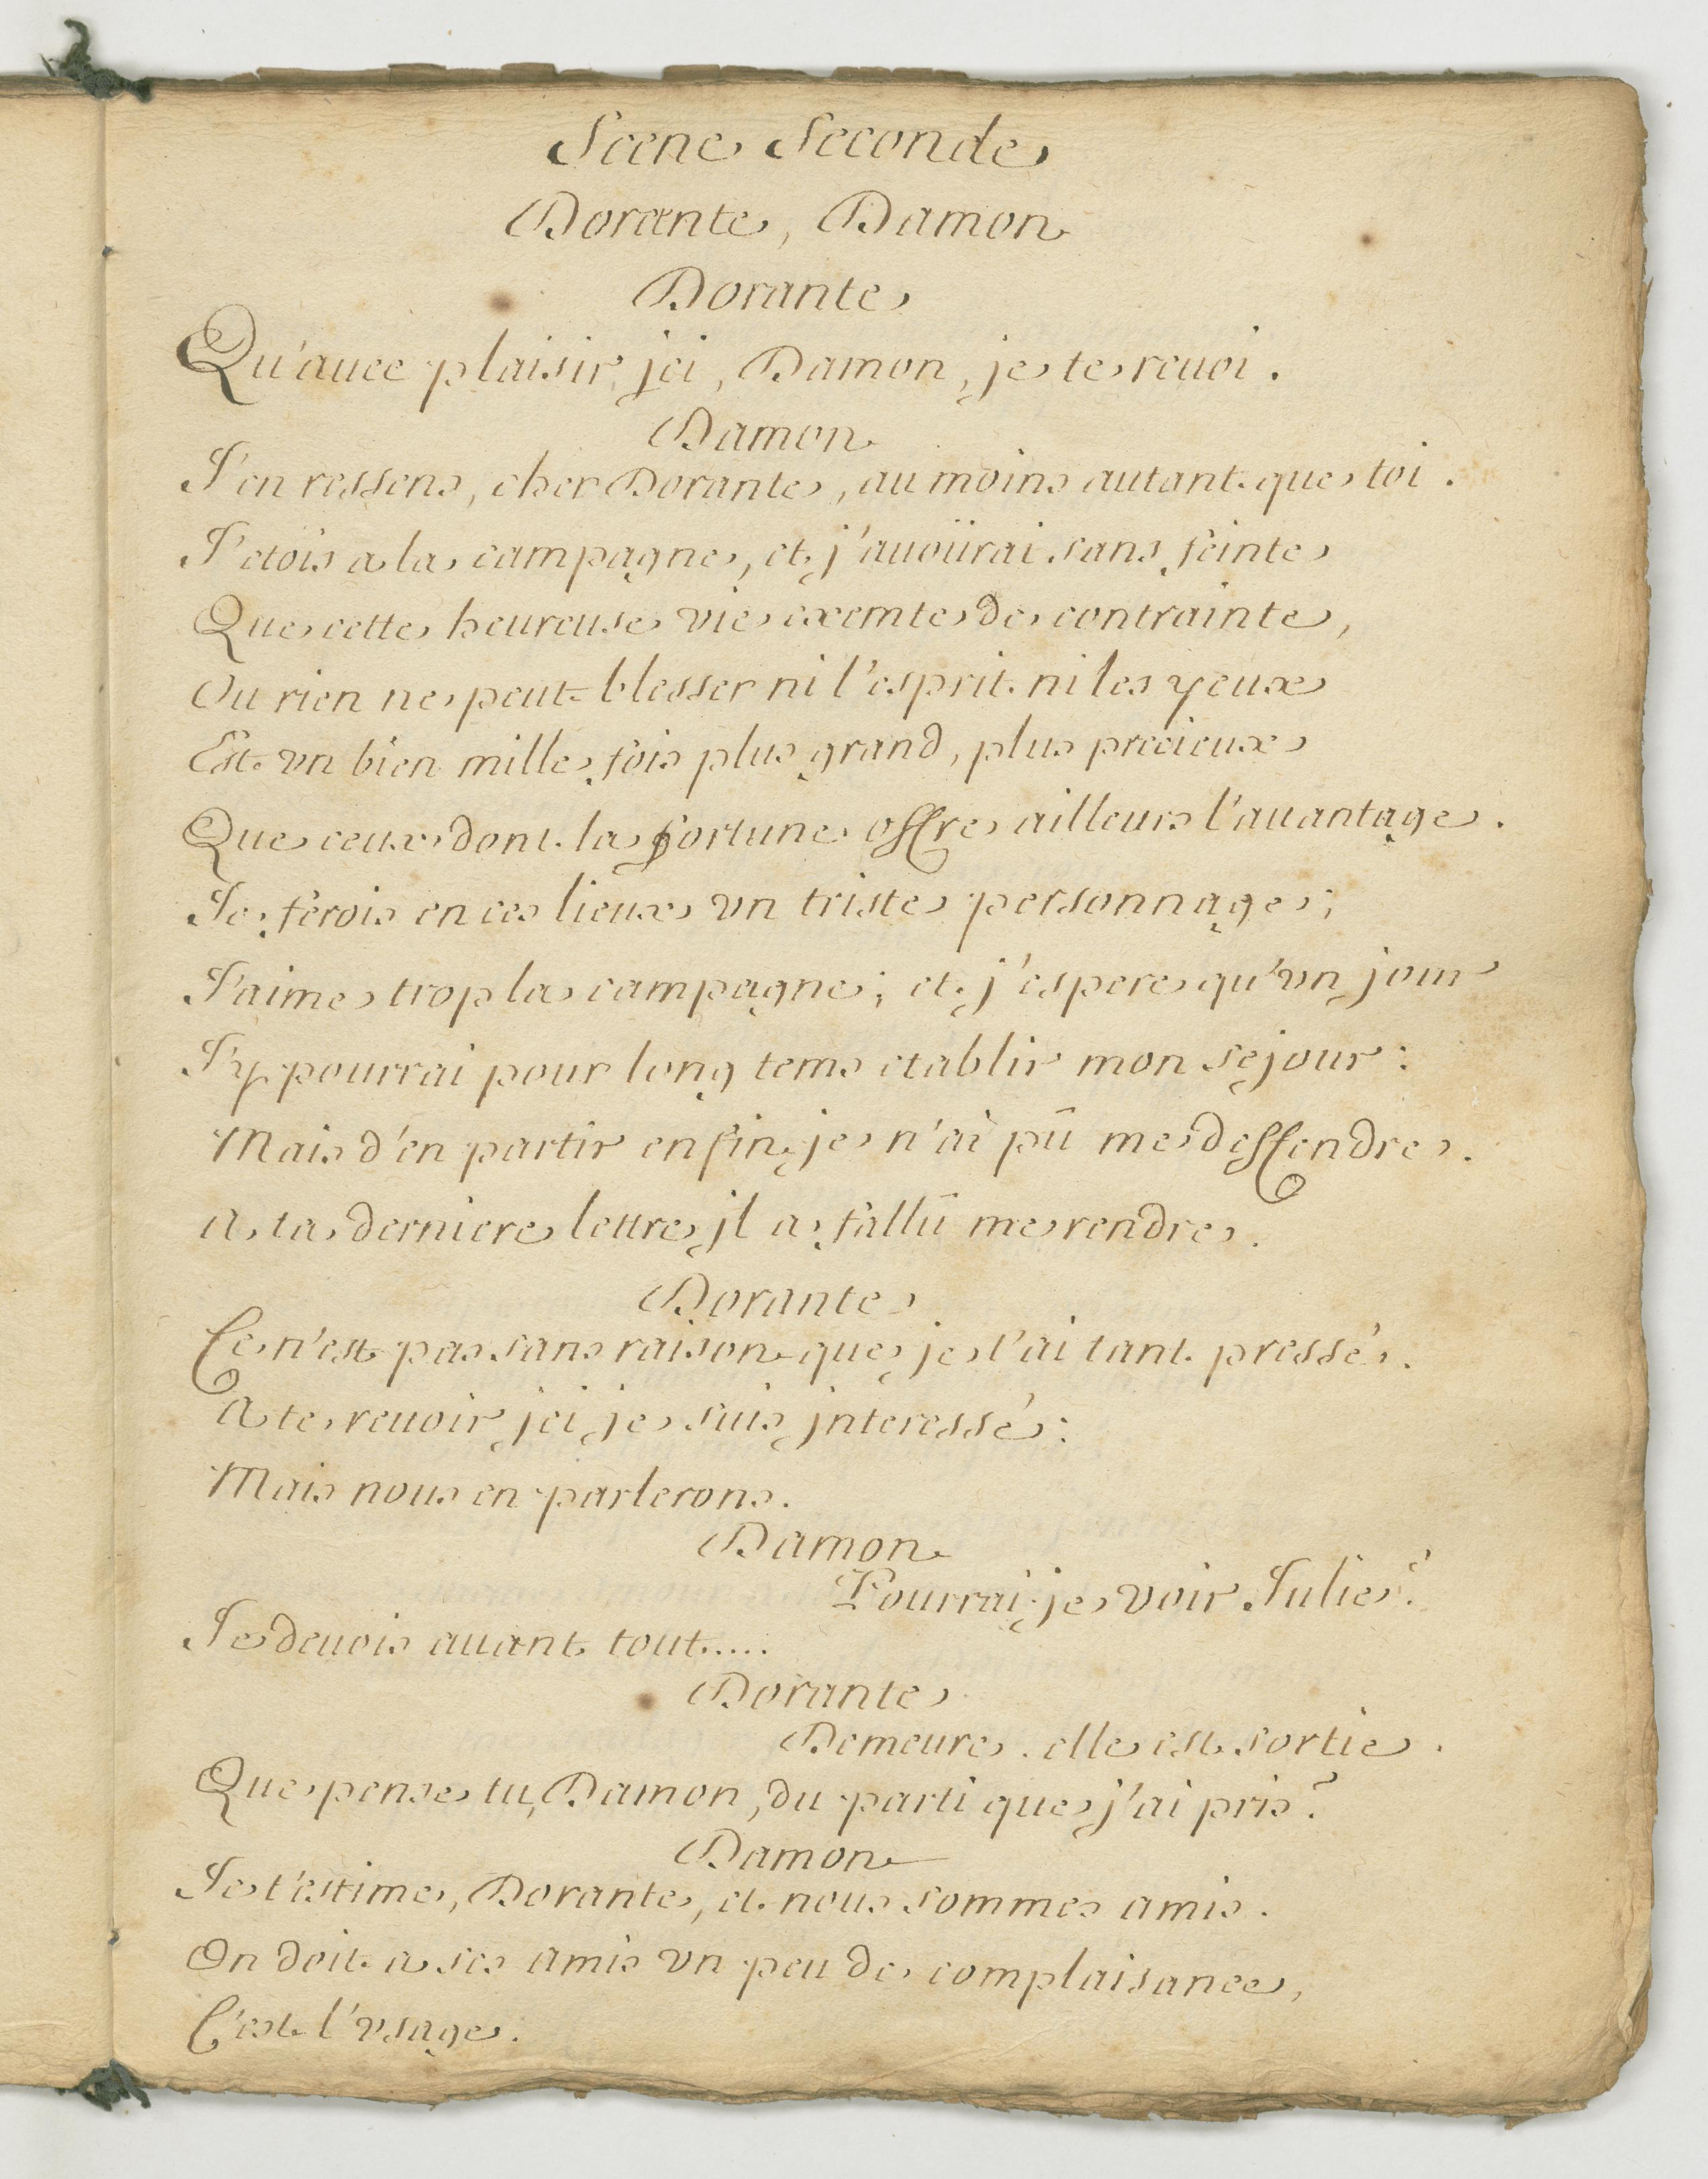 Scene Seconde
Dorante, Damon
Dorante
Qu'auec plaisir jci, Damon, je te reuoi.
Damon
J'en ressens, cher Dorante, au moins autant que toi.
J'etois a la campagne, et j'auoüirai sans feinte
Que cette heureuse vie exemte de contrainte,
Ou rien ne peut blesser ni l'esprit ni les yeux
Est vn bien mille fois plus grand, plus precieux
Que ceux dont la fortune offre ailleurs l'auantage.
Je ferois en ces lieux vn triste personnage;
J'aime trop la campagne; et j'espere qu'vn jour
J'y pourrai pour long tems etablir mon sejour:
Mais d'en partir enfin je n'ai pû me deffendre.
a ta derniere lettre jl a fallû me rendre.
Dorante
Ce n'est pas sans raison que je t'ai tant pressé.
A te reuoir jci je suis jnteressé:
Mais nous en parlerons.
Damon
Pourrai je voir Julie?
Je deuois auant tout.....
Dorante
Demeure. elle est sortie.
Que pense tu, Damon, du parti que j'ai pris?
Damon
Je t'estime, Dorante, et nous sommes amis.
On doit a ses amis vn peu de complaisance,
C'est l'vsage.